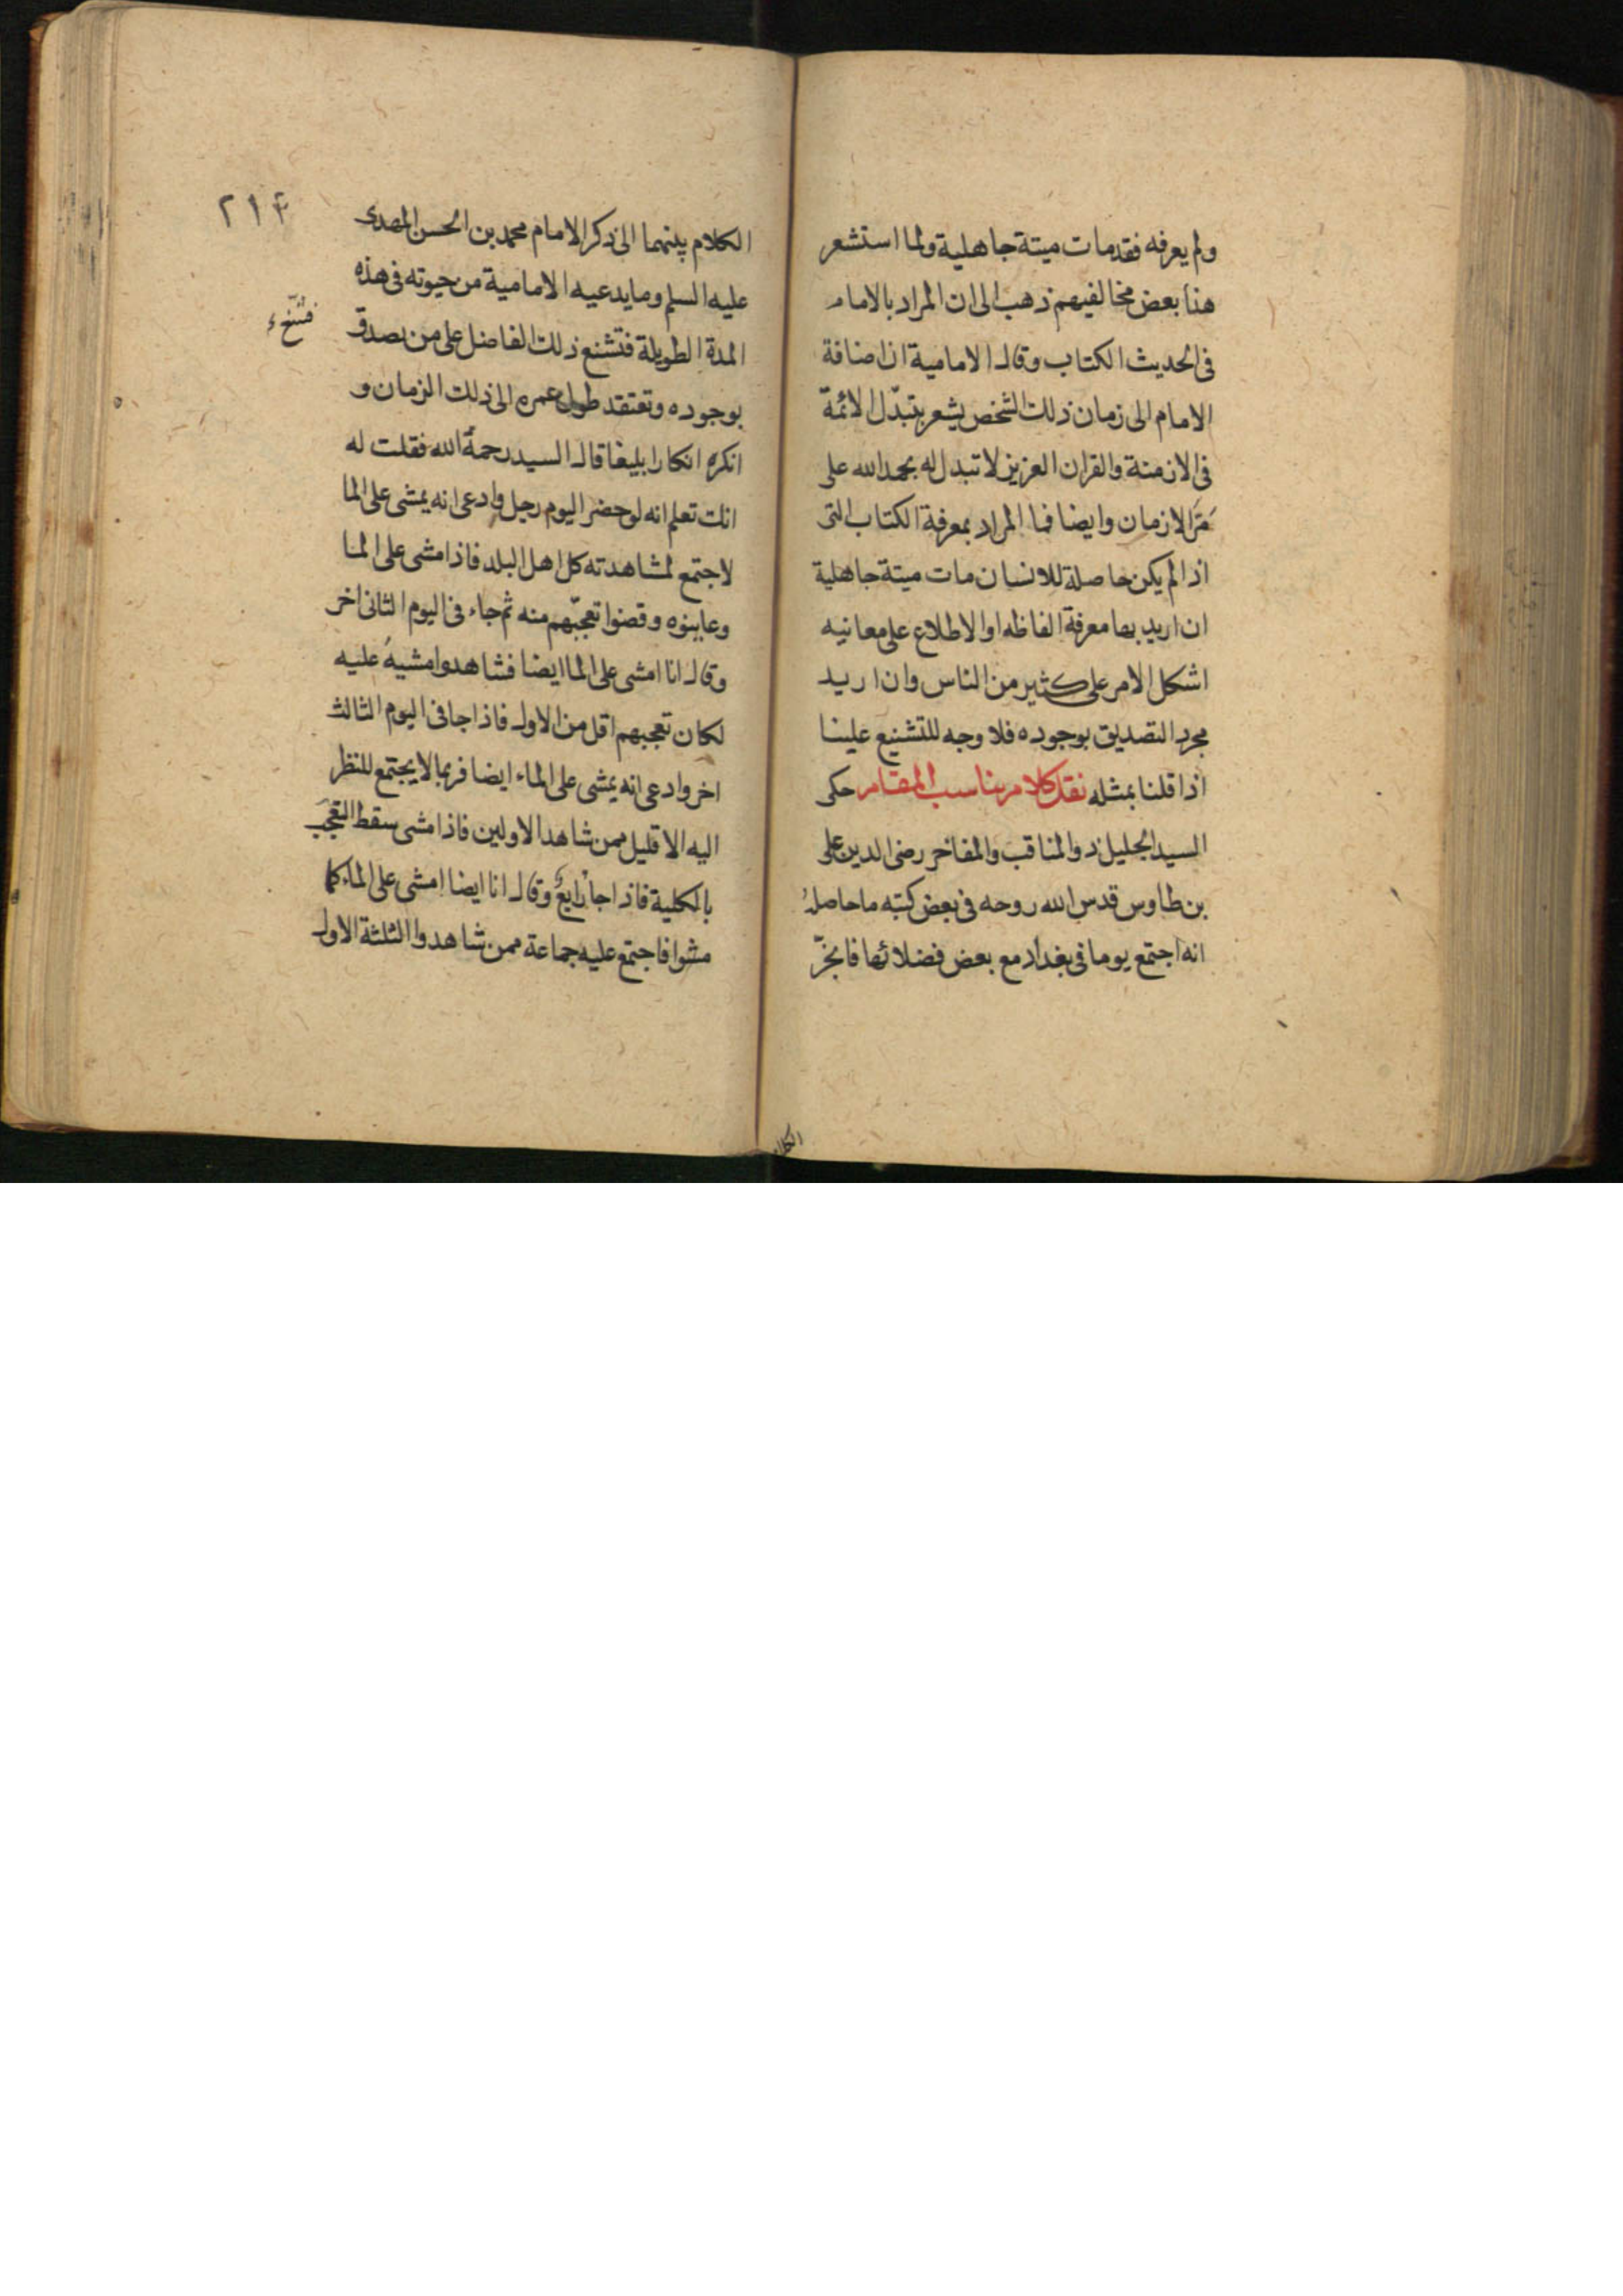 ولم يعرفه فقد مات ميتة جاهلية ولما استشعر
هنا بعض مخالفيهم ذهب الى ان المراد بالامام
فى الحديث الكتاب وقال الامامية ان اضافة
الامام الى زمان ذلك الشخص يشعر بتبدّل الائمة
فى الازمنة والقران العزيز لا تبدل له بحمد الله على
مَرّ الازمان وايضا فما المراد بمعرفة الكتاب التى
اذا لم يكن حاصلة للانسان مات ميتة جاهلية
ان اريد بها معرفة الفاظه او الاطلاع على معانيه
اشكل الامر على كثير من الناس وان اريد
مجرد التصديق بوجوده فلا وجه للتشنيع علينا
اذا قلنا بمثله نقل كلام يناسب المقام حكى
السيد الجليل ذو المناقب والمفاخر رضى الدين على
بن طاوس قدس الله روحه فى بعض كتبه ما حاصلهُ
انه اجتمع يوما فى بغداد مع بعض فضلائها فانجرّ
الكلام
٢١۴
الكلام بينهما الى ذكر الامام محمد بن الحسن المهدى
عليه السلم وما يدعيه الامامية من حيوته فى هذه
المدة الطويلة فتشنع ذلك الفاضل على من يصدق
بوجوده وتعتقد طول عمره الى ذلك الزمان و
انكره انكارا بليغا قال السيد رحمة الله فقلت له
انك تعلم انه لو حضر اليوم رجل وادعى انه يمشى على الما
لاجتمع لمشاهدته كل اهل البلد فاذا مشى على الما
وعاينوه وقضوا تعجّبهم منه ثم جاء فى اليوم الثانى اخر
وقال انا امشى على الما ايضا فشاهدوا مشيهُ عليه
لكان تعجبهم اقل من الاول فاذا جا فى اليوم الثالث
اخر وادعى انه يمشى على الماء ايضا فربما لا يجتمع للنظر
اليه الا قليل ممن شاهد الاولين فاذا مشى سقط التعجّب
بالكلية فاذا جا رابعٌ وقال انا ايضا امشى على الماء كما
مشوا فاجتمع عليه جماعة ممن شاهدوا الثلثة الاول